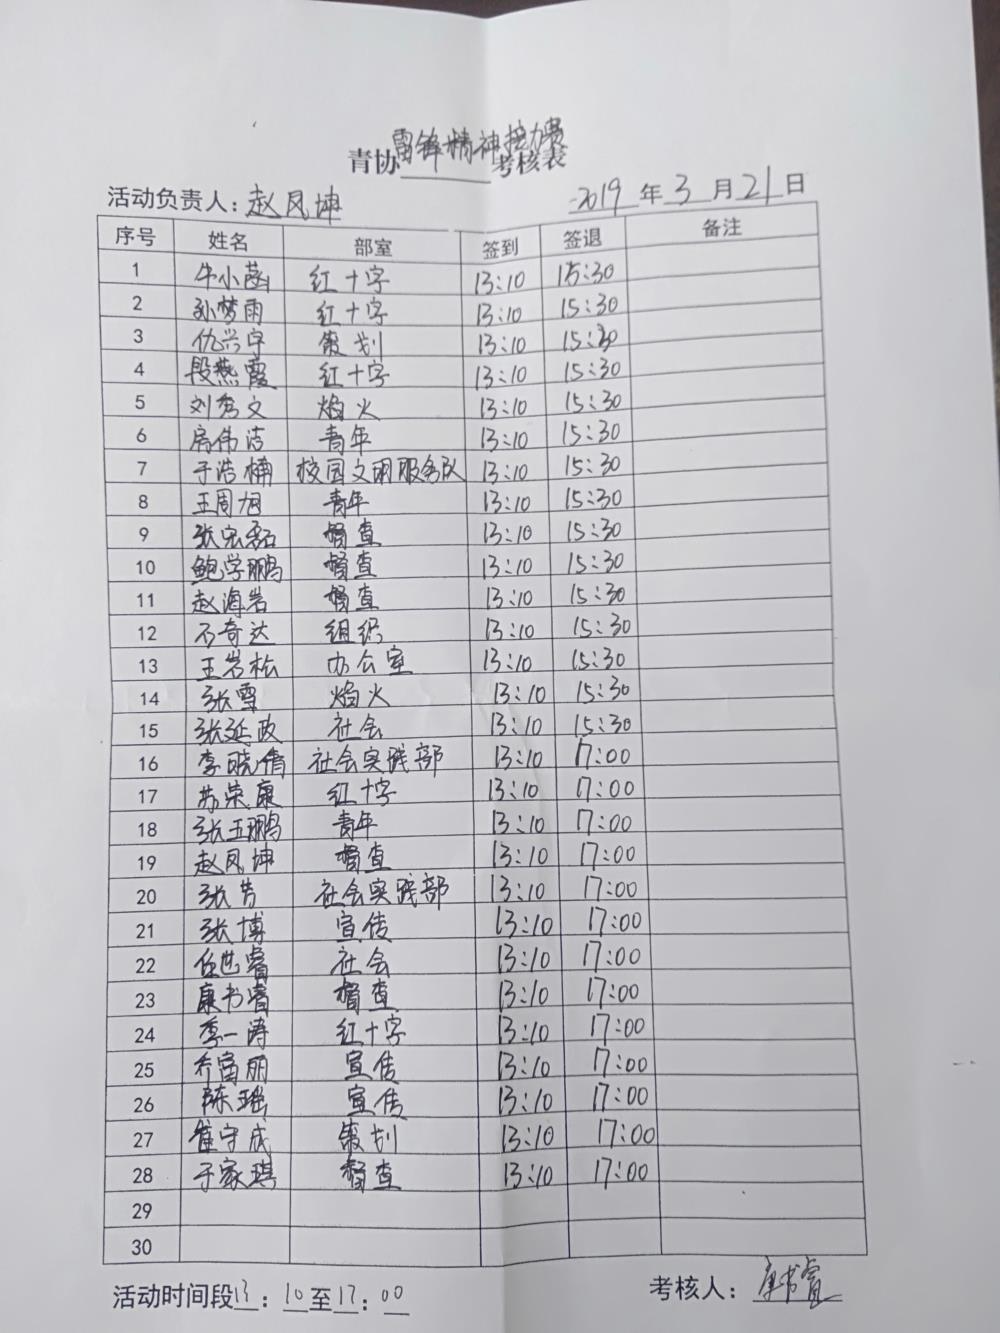 青协雷锋精神接力赛考核表
活动负责人：赵凤坤 2019 年 3 月 21 日
序号 姓名 部室 签到 签退 备注
1 牛小菡 红十字 13:10 15:30
2 孙梦雨 红十字 13:10 15:30
3 仇兴宇 策划 13:10 15:30
4 段燕霞 红十字 13:10 15:30
5 刘秀文 焰火 13:10 15:30
6 房伟洁 青年 13:10 15:30
7 于浩楠 校园文明服务队 13:10 15:30
8 王周旭 青年 13:10 15:30
9 张宏磊 督查 13:10 15:30
10 鲍学鹏 督查 13:10 15:30
11 赵海岩 督查 13:10 15:30
12 石奇达 组织 13:10 15:30
13 王岩松 办公室 13:10 15:30
14 张雪 焰火 13:10 15:30
15 张延政 社会 13:10 15:30
16 李晓倩 社会实践部 13:10 17:00
17 苏荣康 红十字 13:10 17:00
18 张玉鹏 青年 13:10 17:00
19 赵凤坤 督查 13:10 17:00
20 张芳 社会实践部 13:10 17:00
21 张博 宣传 13:10 17:00
22 任世睿 社会 13:10 17:00
23 康书睿 督查 13:10 17:00
24 李一涛 红十字 13:10 17:00
25 乔富丽 宣传 13:10 17:00
26 陈瑶 宣传 13:10 17:00
27 崔守成 策划 13:10 17:00
28 于家琪 督查 13:10 17:00
29
30
活动时间段13：10至17：00 考核人：康书睿